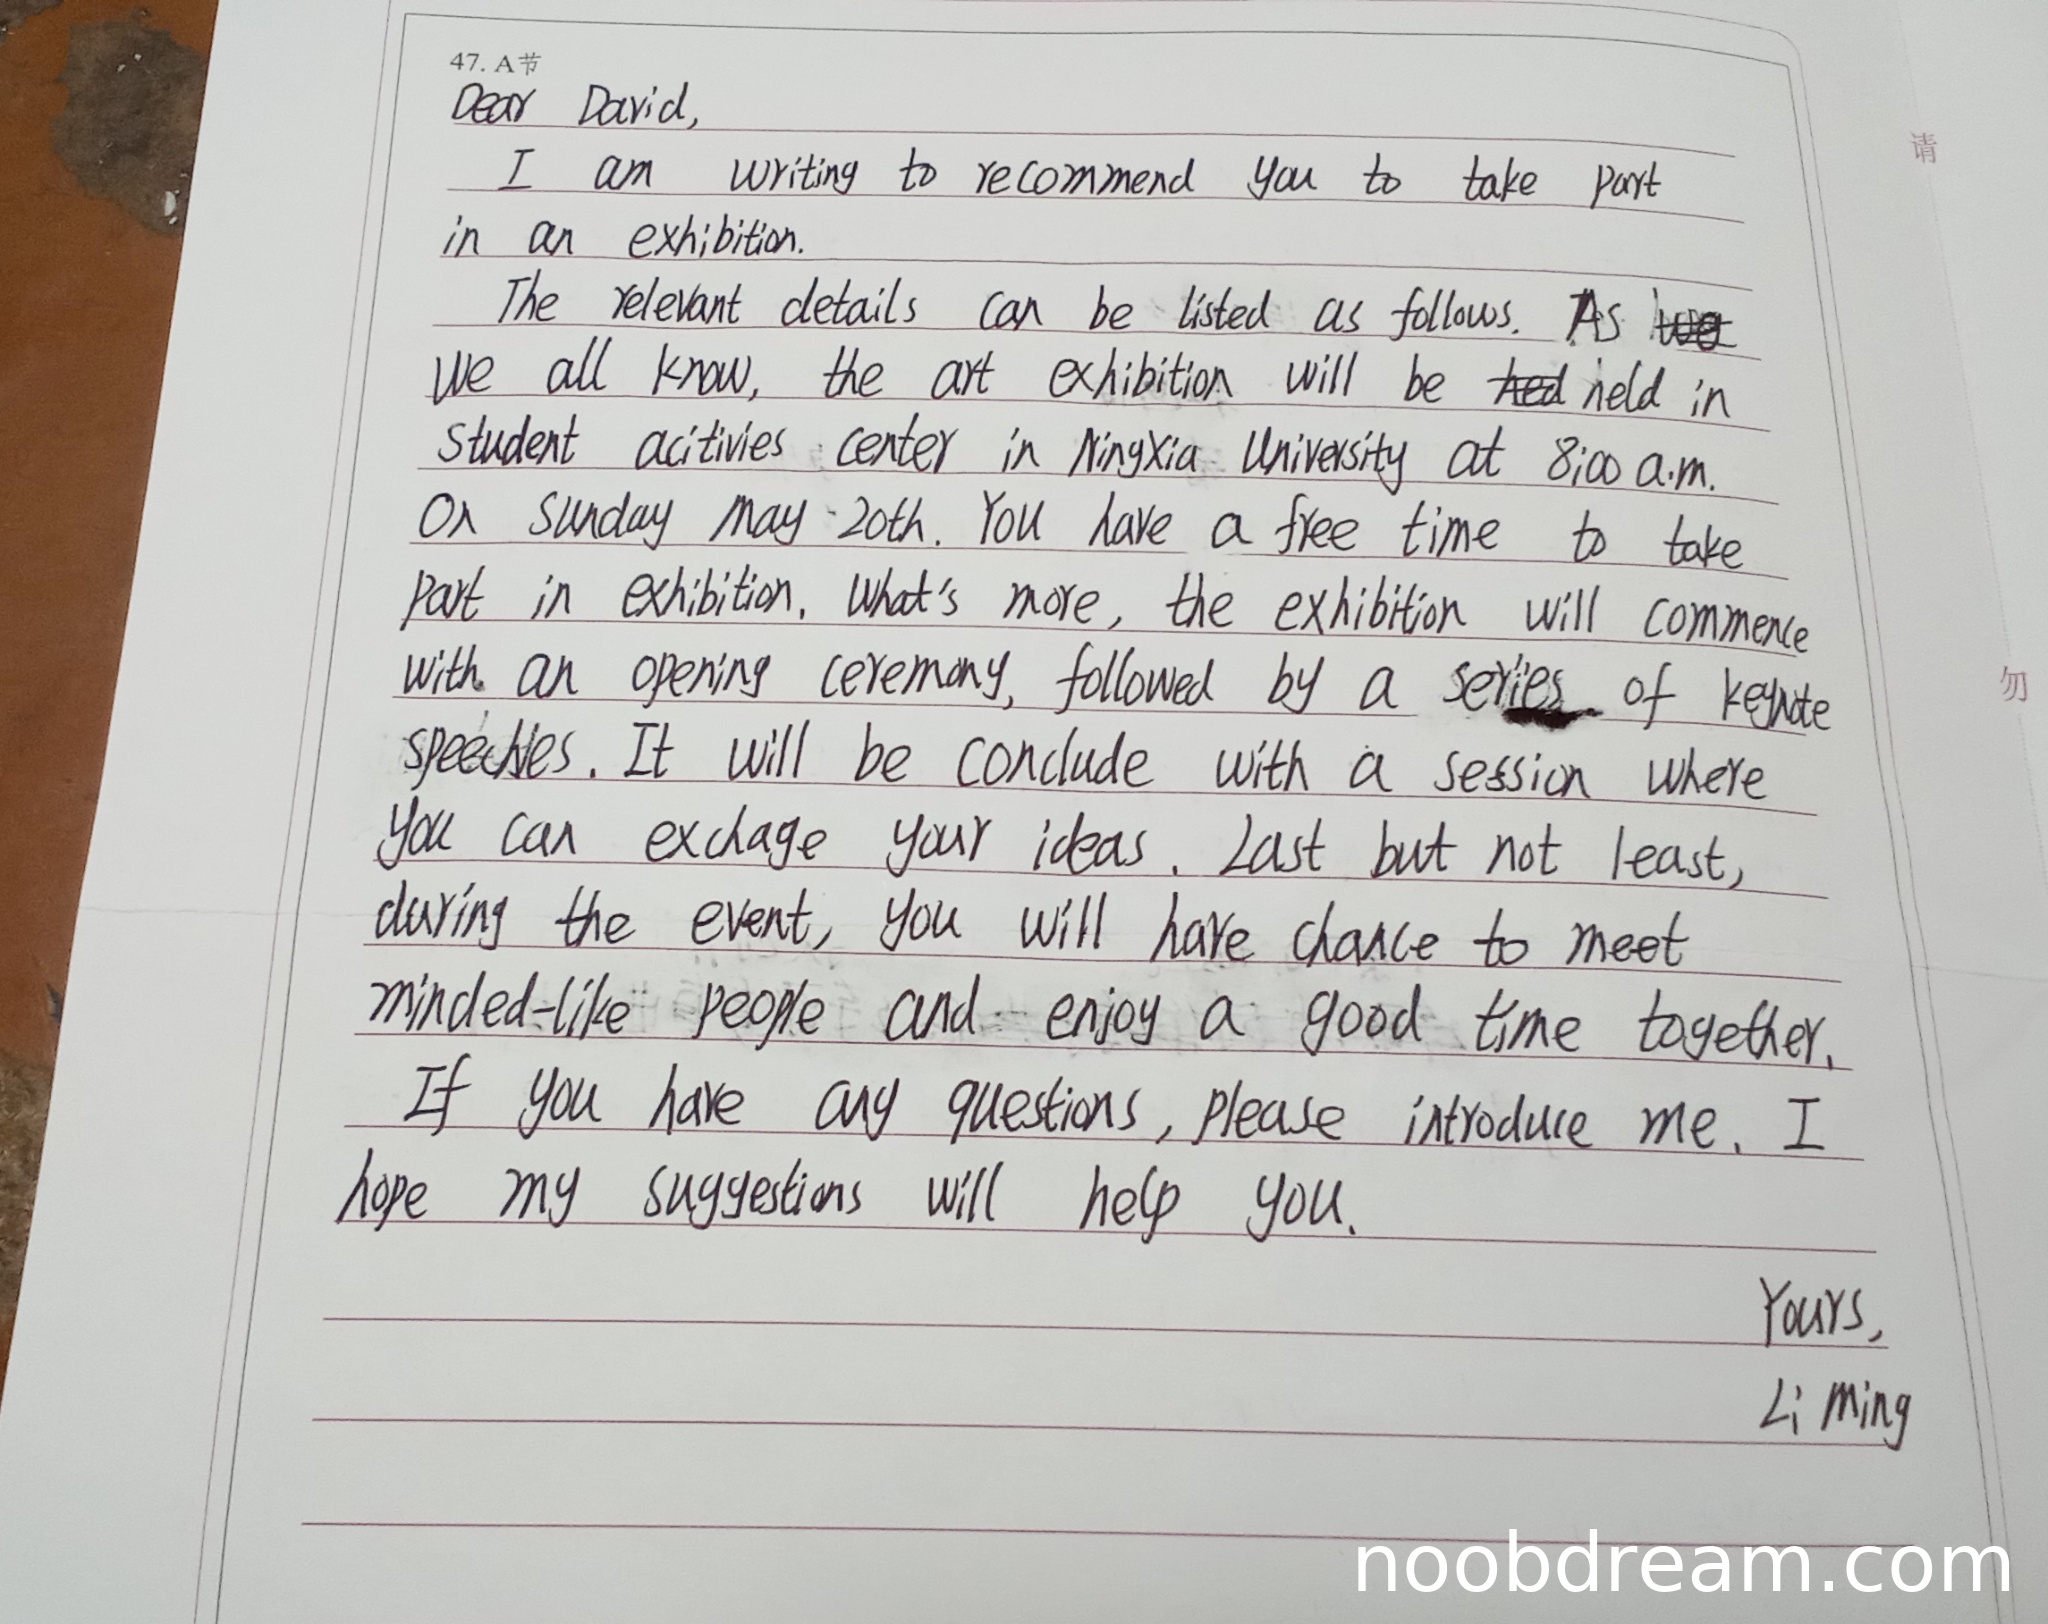 47. A节
Dear David,
I am writing to recommend you to take part
in an exhibition.
The relevant details can be listed as follows. As
we all know, the art exhibition will be held in
student acitivies center in NingXia University at 8:00 a.m.
On Sunday May 20th. You have a free time to take
part in exhibition. What's more, the exhibition will commence
with an opening ceremony, followed by a series of keynote
speeches. It will be conclude with a session where
you can exchage your ideas. Last but not least,
during the event, you will have chance to meet
minded-like people and enjoy a good time together.
If you have any questions, please introduce me. I
hope my suggestions will help you.
Yours,
Li Ming
请
勿
noobdream.com